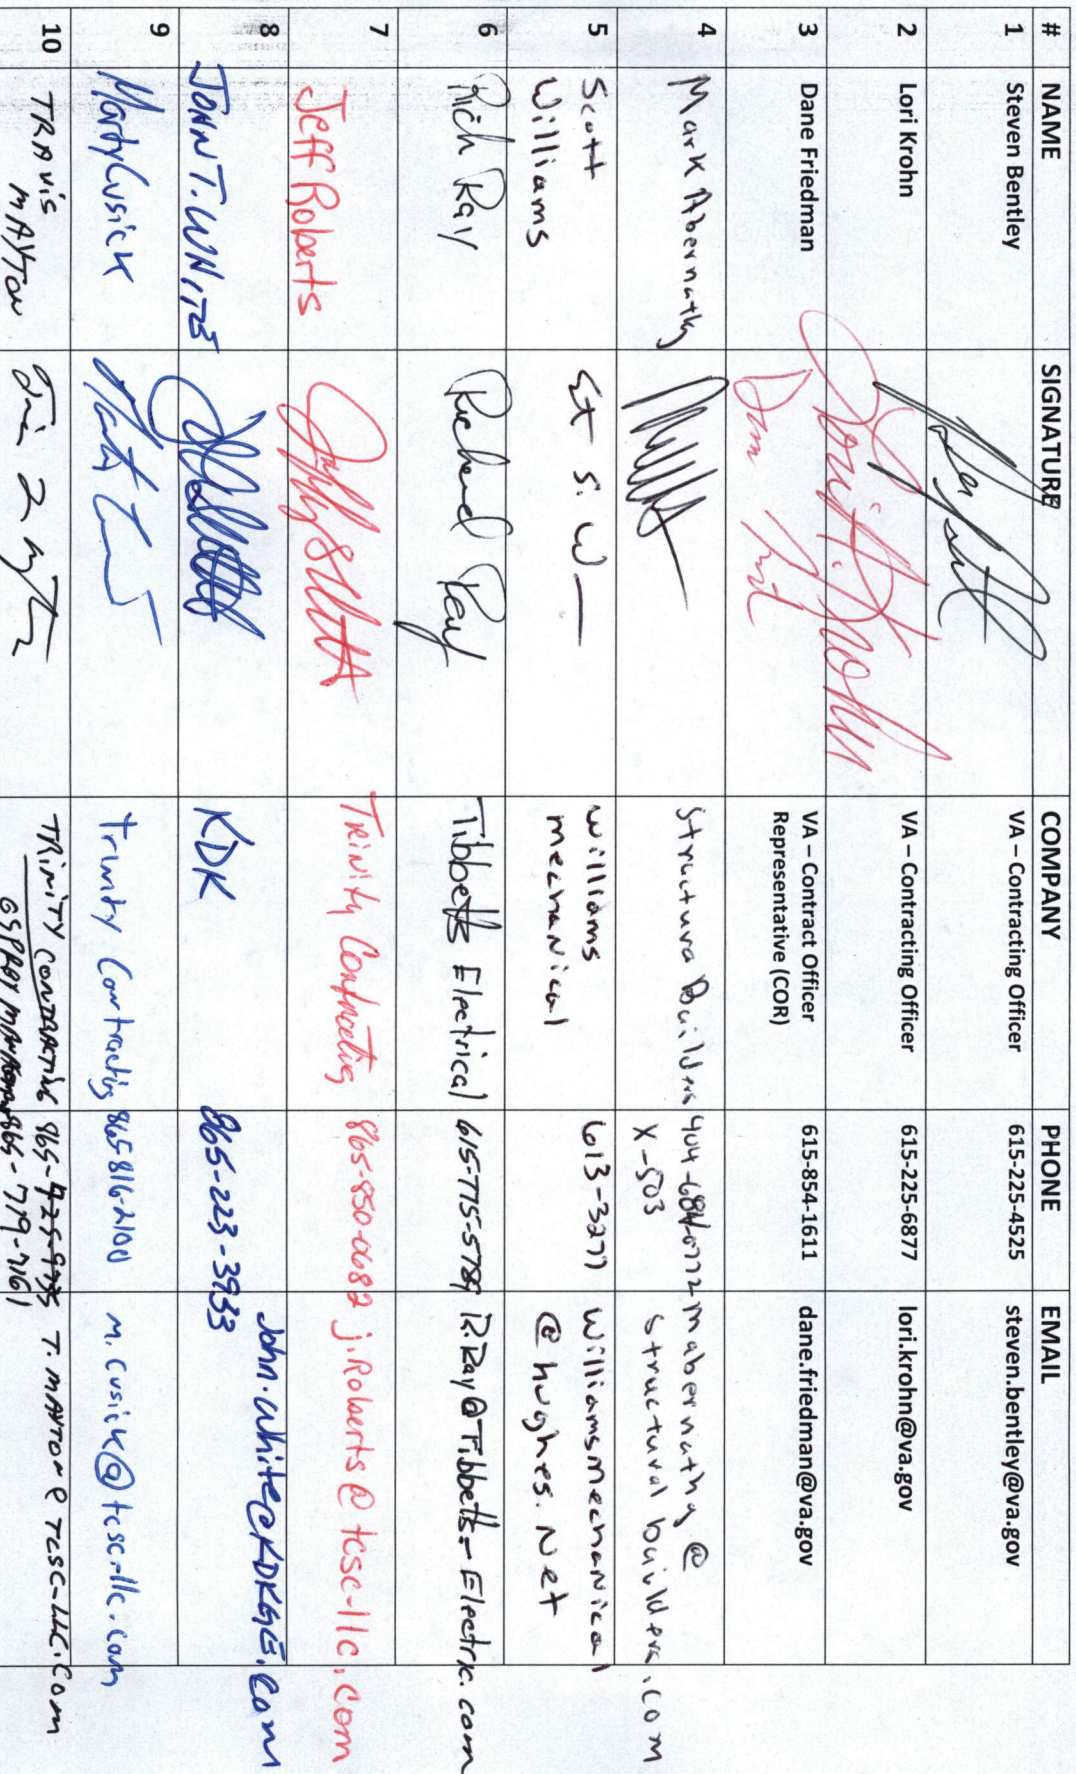 # NAME SIGNATURE COMPANY PHONE EMAIL
1 Steven Bentley VA – Contracting Officer 615-225-4525 steven.bentley@va.gov
2 Lori Krohn VA – Contracting Officer 615-225-6877 lori.krohn@va.gov
3 Dane Friedman VA – Contract Officer 615-854-1611 dane.friedman@va.gov
Representative (COR)
4 Mark Abernathy Structural Builders 404-684-0772 mabernathy@
X-503 structural builders.com
5 Scott St S. W Williams 613-3277 williamsmechanical
Williams mechanical @hughes.Net
6 Rich Ray Richard Ray Tibbetts Electrical 615-775-5789 R.Ray@Tibbetts-Electric.com
7 Jeff Roberts Trinity Contracting 865-850-0682 j.Roberts@tcsc-llc.com
8 JOHN T. WHITE KDK 865-223-3933 John.white@KDKGE.com
9 Marty Cusick Trinity Contracting 865 816-2100 m.cusick@tcsc-llc.com
10 TRAVIS MAYTON TRINITY CONTRACTING 865- T.MAYTON@TCSC-LLC.COM
865-779-7161